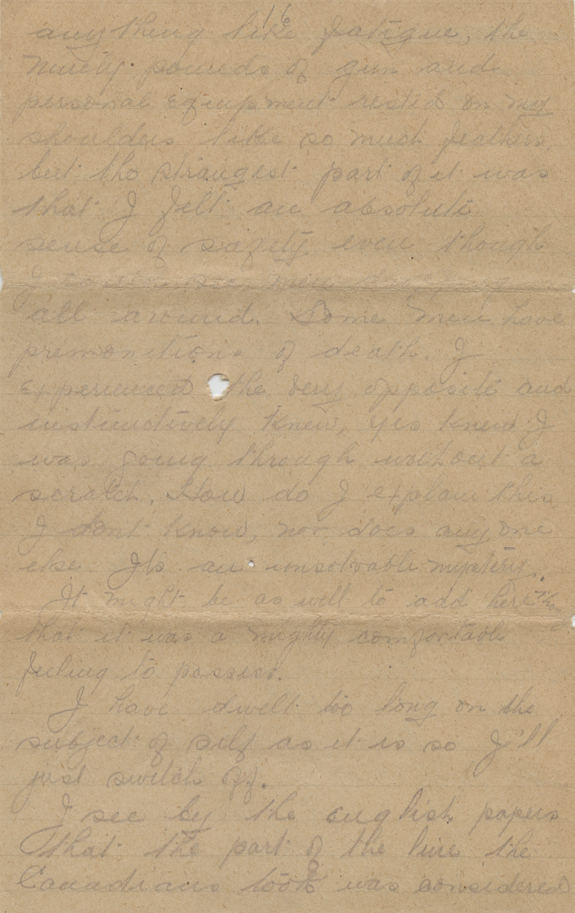 16
anything like fatigue, the
ninety pounds of gun and
personal equipment rested on my
shoulders like so much feathers,
but the strangest part of it was
that I felt an absolute
sense of safety even though
I could see men
all around. Some men have
premonitions of death. I
experienced the very opposite and
instinctively knew, yes knew I
was going through without a
scratch. How do I explain this
I dont know, nor does anyone
else. Its an unsolvable mystery.
It might be as well to add here
that it was a mighty comfortable
feeling to possess.
I have dwelt too long on the
subject of self as it is so I'll
just switch off.
I see by the english papers
that the part of the line the
Canadians took was considered